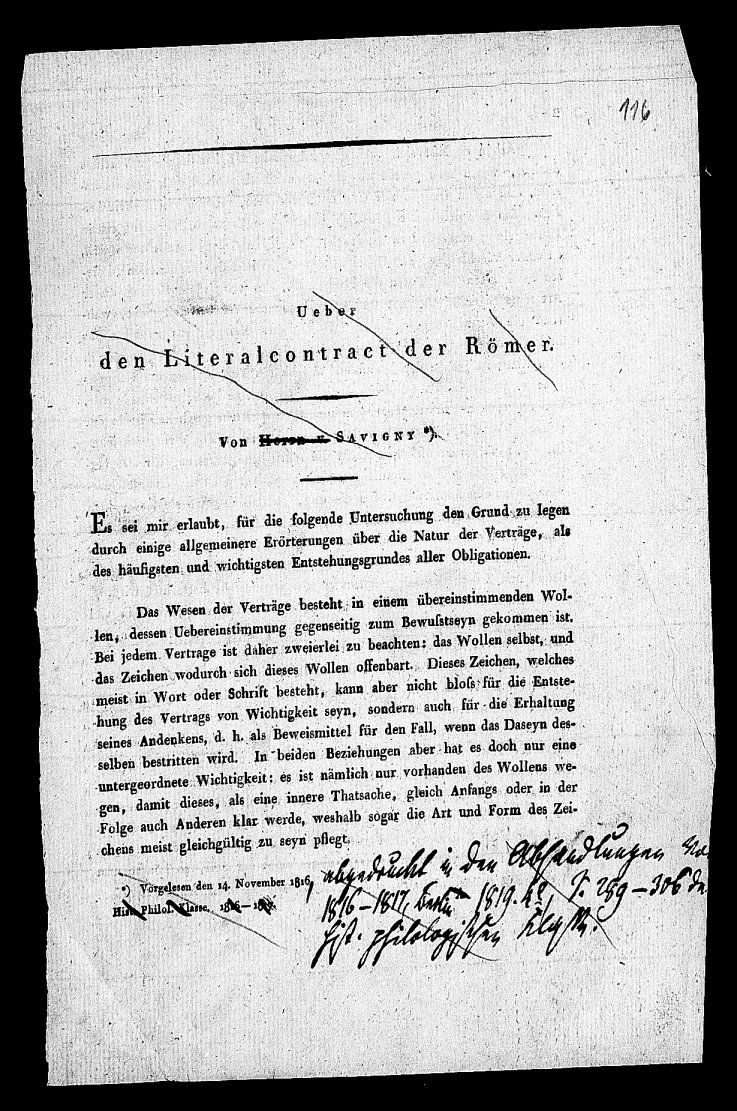 116
Ueber
den Literalcontract der Römer.
Von Herrn v. SAVIGNY *).
Es sei mir erlaubt, für die folgende Untersuchung den Grund zu legen
durch einige allgemeinere Erörterungen über die Natur der Verträge, als
des häufigsten und wichtigsten Entstehungsgrundes aller Obligationen.
Das Wesen der Verträge besteht in einem übereinstimmenden Wol-
len, dessen Uebereinstimmung gegenseitig zum Bewuſstseyn gekommen ist.
Bei jedem Vertrage ist daher zweierlei zu beachten: das Wollen selbst, und
das Zeichen wodurch sich dieses Wollen offenbart. Dieses Zeichen, welches
meist in Wort oder Schrift besteht, kann aber nicht bloſs für die Entste-
hung des Vertrags von Wichtigkeit seyn, sondern auch für die Erhaltung
seines Andenkens, d. h. als Beweismittel für den Fall, wenn das Daseyn des-
selben bestritten wird. In beiden Beziehungen aber hat es doch nur eine
untergeordnete Wichtigkeit: es ist nämlich nur vorhanden des Wollens we-
gen, damit dieses, als eine innere Thatsache, gleich Anfangs oder in der
Folge auch Anderen klar werde, weshalb sogar die Art und Form des Zei-
chens meist gleichgültig zu seyn pflegt.
*) Vorgelesen den 14. November 1816, abgedruckt in den Abhandlungen
Hist. Philol. Klasse. 1816— 1816–1817, Berlin 1819. 4º, S. 289–306 de
hist. philologischen Klasse.